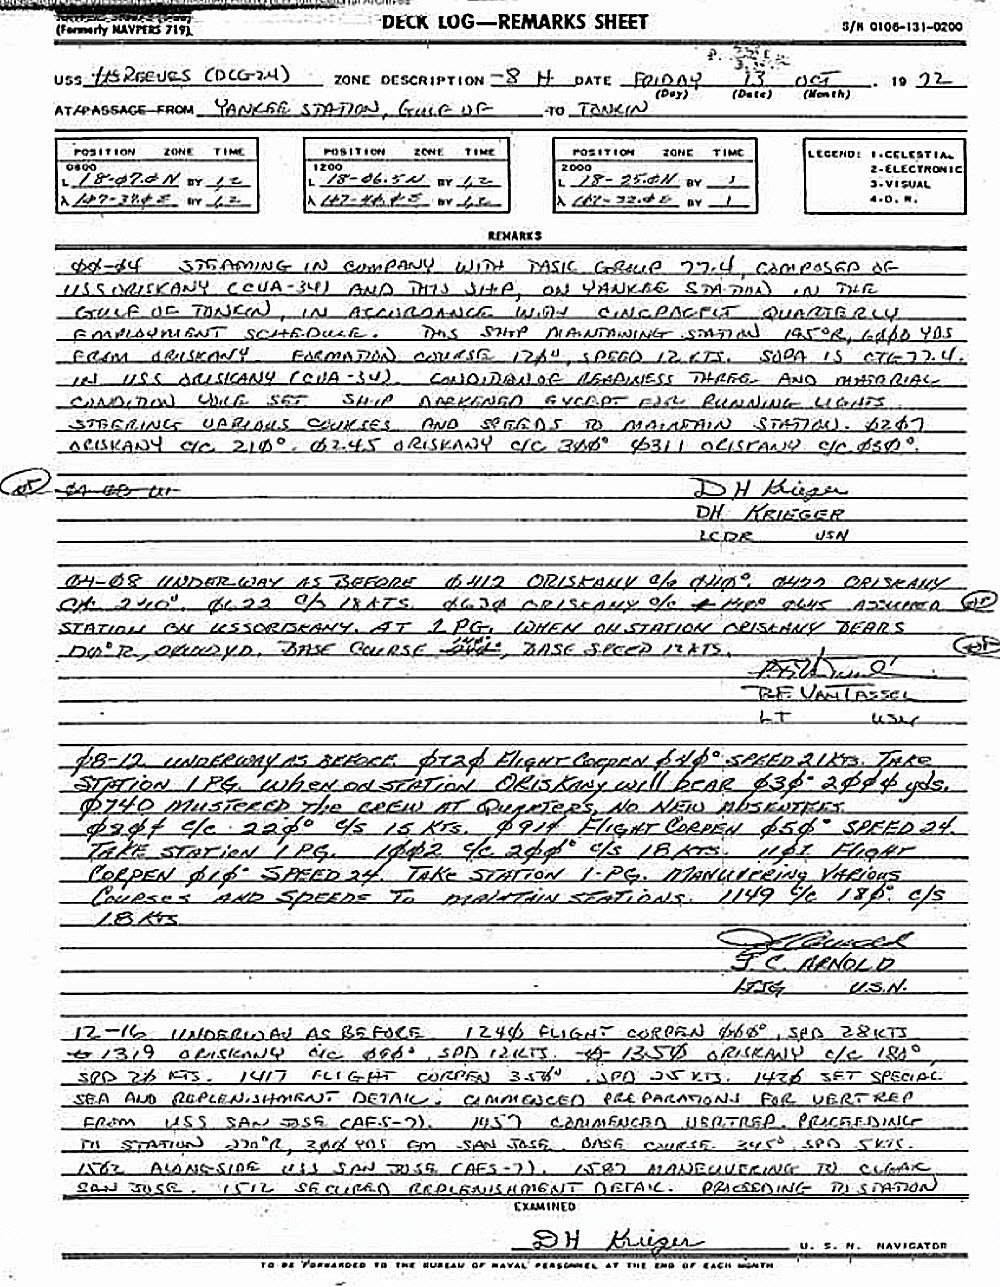 (Formerly NAVPERS 719)
DECK LOG—REMARKS SHEET
S/N 0106-131-0200
USS REEVES (DCG-24) ZONE DESCRIPTION -8 H DATE FRIDAY 13 OCT . 19 72
(Day) (Date) (Month)
AT/PASSAGE FROM YANKEE STATION, GULF OF TO TONKIN
POSITION ZONE TIME POSITION ZONE TIME POSITION ZONE TIME
0800 1200 2000
L 18-07.0N BY 1,2 L 18-06.5N BY 1,2 L 18-25.0N BY 1
λ BY 1,2 λ BY 1,2 λ BY 1
LEGEND: 1-CELESTIAL
2-ELECTRONIC
3-VISUAL
4-D. R.
REMARKS
00-04 STEAMING IN COMPANY WITH TASK GROUP 77.4, COMPOSED OF
USS ORISKANY (CVA-34) AND THIS SHIP, ON YANKEE STATION IN THE
GULF OF TONKIN, IN ACCORDANCE WITH CINCPACFLT QUARTERLY
EMPLOYMENT SCHEDULE. THIS SHIP MAINTAINING STATION 195°R, YDS
FROM ORISKANY. FORMATION COURSE 120°, SPEED 12 KTS. SOPA IS CTG 77.4.
IN USS ORISKANY (CVA-34). CONDITION OF READINESS THREE AND MATERIAL
CONDITION YOKE SET. SHIP DARKENED EXCEPT FOR RUNNING LIGHTS.
STEERING VARIOUS COURSES AND SPEEDS TO MAINTAIN STATION. 0207
ORISKANY C/C 210°. 0245 ORISKANY C/C 300° 0311 ORISKANY C/C 030°.
DH Krieger
DH KRIEGER
LCDR USN
04-08 UNDERWAY AS BEFORE 0412 ORISKANY C/C 040°. 0422 ORISKANY
C/C 240°. 0622 C/S 18 KTS. 0630 ORISKANY C/C 0645 ASSUMED
STATION ON USS ORISKANY. AT 1 PG. WHEN ON STATION ORISKANY BEARS
BASE COURSE , BASE SPEED 12 KTS.
R.F. VANTASSEL
LT USN
08-12 UNDERWAY AS BEFORE 0720 FLIGHT CORPEN 040° SPEED 21 KTS. TAKE
STATION 1 PG. WHEN ON STATION ORISKANY WILL BEAR 030° 2000 yds.
0740 MUSTERED THE CREW AT QUARTERS, NO NEW ABSENTEES.
C/C 220° C/S 15 KTS. 0914 FLIGHT CORPEN 050° SPEED 24.
TAKE STATION 1 PG. 1002 C/C 200° C/S 18 KTS. 1101 FLIGHT
CORPEN 010° SPEED 24. TAKE STATION 1-PG. MANUVERING VARIOUS
COURSES AND SPEEDS TO MAINTAIN STATIONS. 1149 C/C 180°. C/S
18 KTS
J. C. ARNOLD
LTJG U.S.N.
12-16 UNDERWAY AS BEFORE 1240 FLIGHT CORPEN 060°, SPD 28 KTS
1319 ORISKANY C/C , SPD 12 KTS. 1350 ORISKANY C/C 180°,
SPD 20 KTS. 1417 FLIGHT CORPEN 350°, SPD 25 KTS. 1420 SET SPECIAL
SEA AND REPLENISHMENT DETAIL. COMMENCED PREPARATIONS FOR VERTREP
FROM USS SAN JOSE (AFS-7). 1457 COMMENCED VERTREP. PROCEEDING
TO STATION 270°R, 300 YDS FM SAN JOSE. BASE COURSE 245°, SPD 5 KTS.
1502 ALONGSIDE USS SAN JOSE (AFS-7). 1507 MANEUVERING TO CLEAR
SAN JOSE. 1512 SECURED REPLENISHMENT DETAIL. PROCEEDING TO STATION
EXAMINED
DH Krieger U. S. N. NAVIGATOR
TO BE FORWARDED TO THE BUREAU OF NAVAL PERSONNEL AT THE END OF EACH MONTH